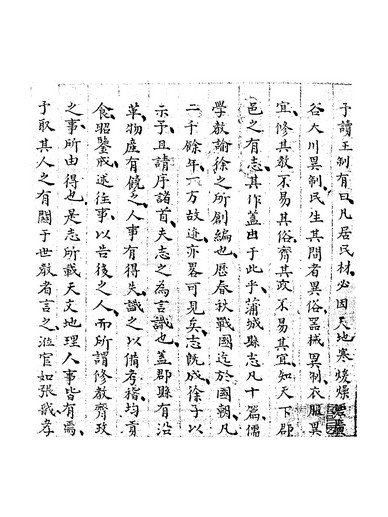 予讀王制有曰凡居民材必因天地寒煖燥濕廣
谷大川異制民生其間者異俗器械異制衣服異
宜修其教不易其俗齊其政不易其宜如天下郡
邑之有志其作蓋出于此乎蒲城縣志凡十篇儒
學教諭徐之所創編也歷春秋戰國迄於國朝凡
二千餘年一方故迹亦畧可見矣志既成徐子以
示予且請序諸首夫志之為言識也蓋郡縣有沿
革物産有饒乏人事有得失識之以備考稽均貢
食昭鑒戒述往事以告後之人而所謂修教齊政
之事所由得也是志所載天文地理人事皆有焉
于取其人之有關于世教者言之涖官如張戩孝